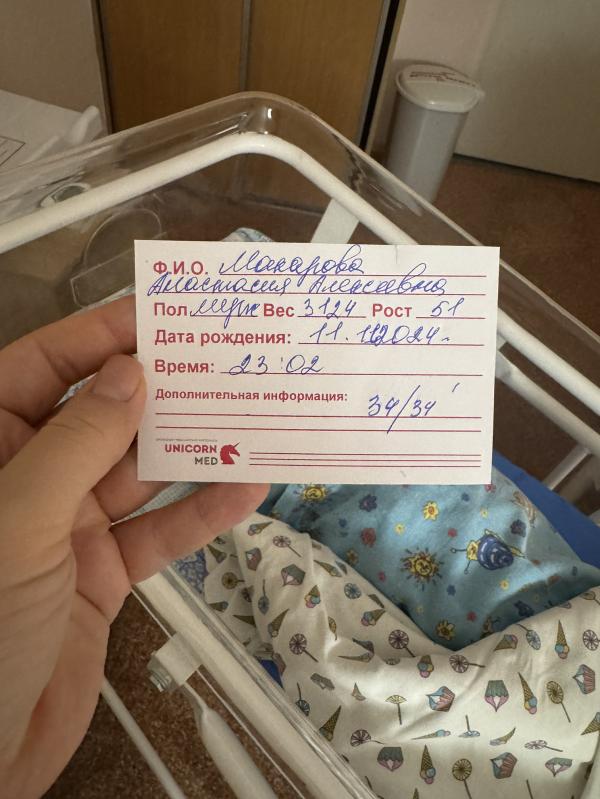 Ф.И.О. Макарова
Анастасия Алексеевна
Пол муж Вес 3124 Рост 51
Дата рождения: 11.11.2024.
Время: 23:02
Дополнительная информация:
34/34
UNICORN
MED